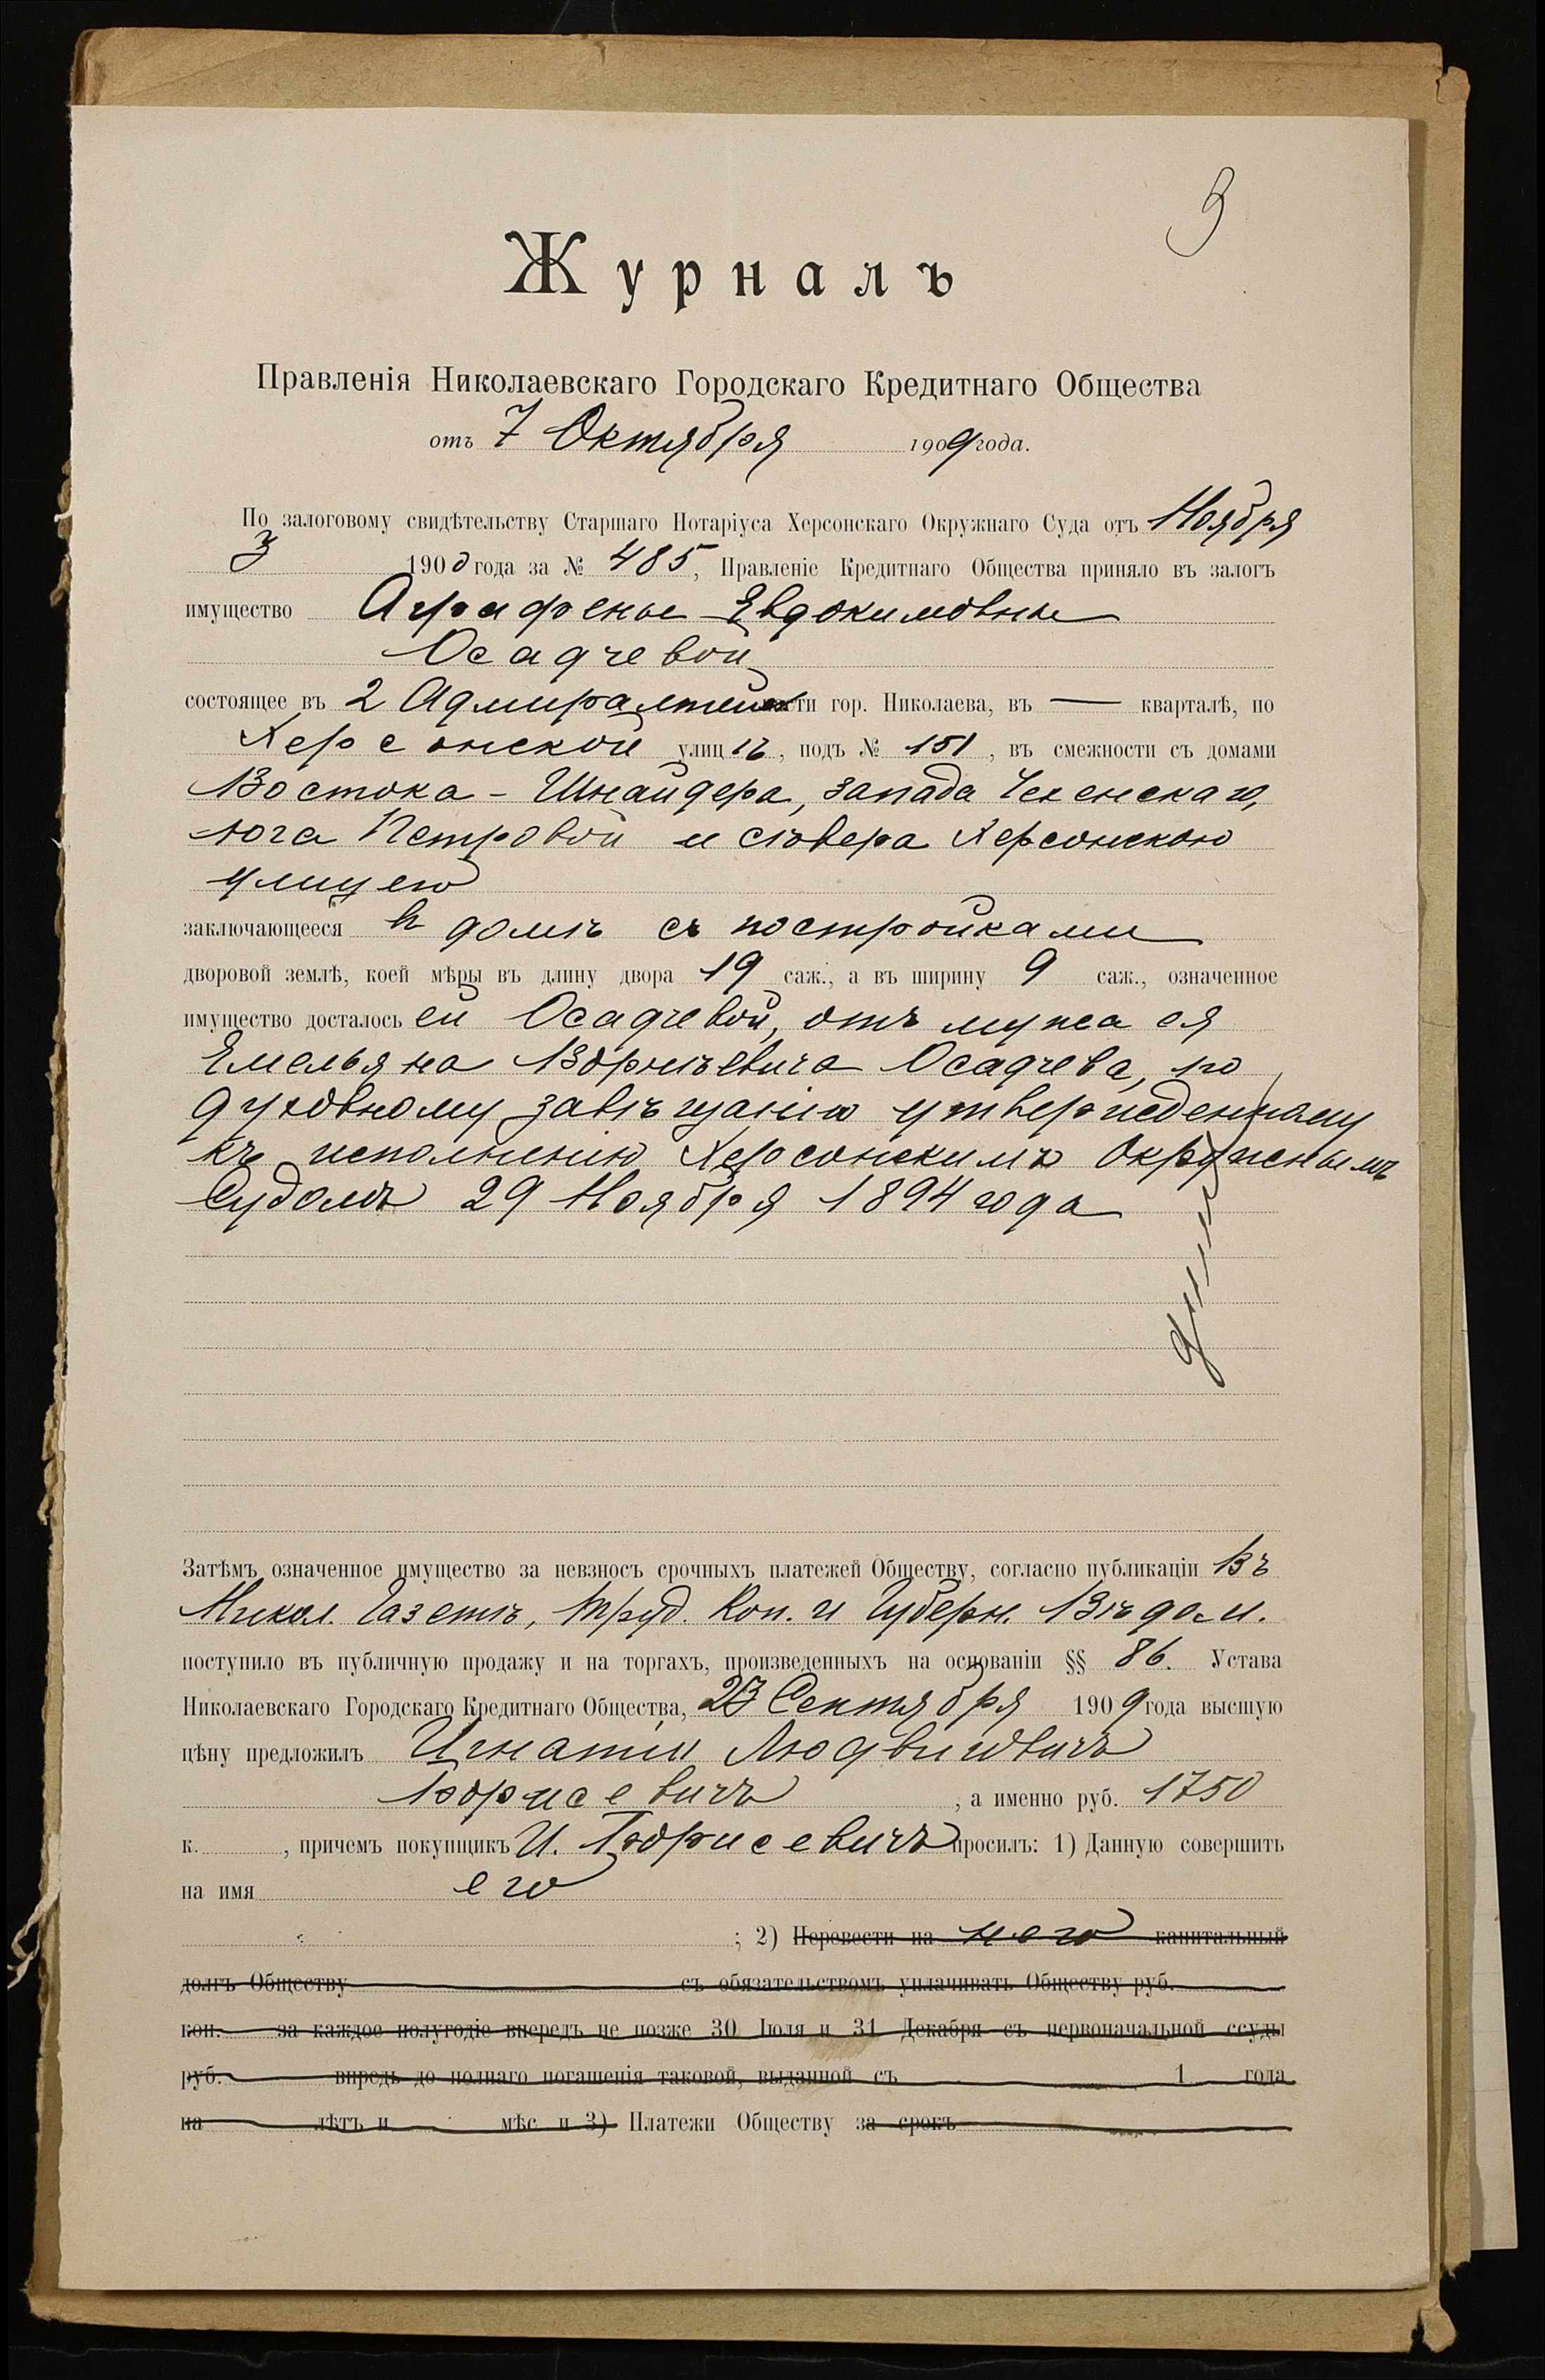 3
Журналъ
Правленія Николаевскаго Городскаго Кредитнаго Общества
отъ 7 Октября 1909 года.
По залоговому свидѣтельству Старшаго Нотаріуса Херсонскаго Окружнаго Суда отъ Ноября
3 1900 года за № 485, Правленіе Кредитнаго Общества приняло въ залогъ
имущество Аграфены Евдокимовны
Осадчевой
состоящее въ 2 Адмиралтейск части гор. Николаева, въ — кварталѣ, по
Херсонской улицѣ, подъ № 151, въ смежности съ домами
Востока - Шнайдера, запада Чехенскаго,
юга Петровой и сѣвера Херсонскою
улицею
заключающееся въ домѣ съ постройками
дворовой землѣ, коей мѣры въ длину двора 19 саж., а въ ширину 9 саж., означенное
имущество досталось ей Осадчевой, отъ мужа ея
Емельяна Осадчева, по
духовному завѣщанію утвержденному
къ исполненію Херсонскимъ Окружнымъ
Судомъ 29 Ноября 1894 года
Затѣмъ означенное имущество за невзносъ срочныхъ платежей Обществу, согласно публикаціи въ
Никол. Газетѣ, Труд. Коп. и Губерн. Вѣдом.
поступило въ публичную продажу и на торгахъ, произведенныхъ на основаніи §§ 86. Устава
Николаевскаго Городскаго Кредитнаго Общества, 23 Сентября 1909 года высшую
цѣну предложилъ Игнатій Людвиговичъ
Борисевичъ , а именно руб. 1750
к. , причемъ покупщикъ И. Борисевичъ просилъ: 1) Данную совершить
на имя его
; 2) Перевести на него капитальный
долгъ Обществу съ обязательствомъ уплачивать Обществу руб.
коп. за каждое полугодіе впередъ не позже 30 Іюля и 31 Декабря съ первоначальной ссуды
руб. впредь до полнаго погашенія таковой, выданной съ 1 года
на лѣтъ и мѣс. и 3) Платежи Обществу за срокъ